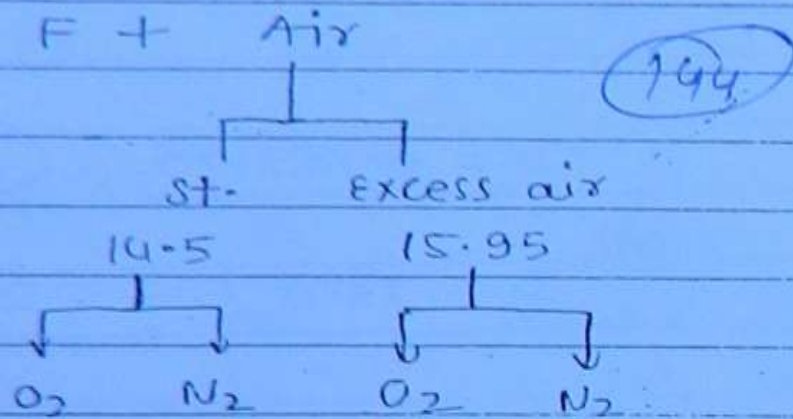 F + Air
144
St. Excess air
14.5 15.95
O2 N2 O2 N2